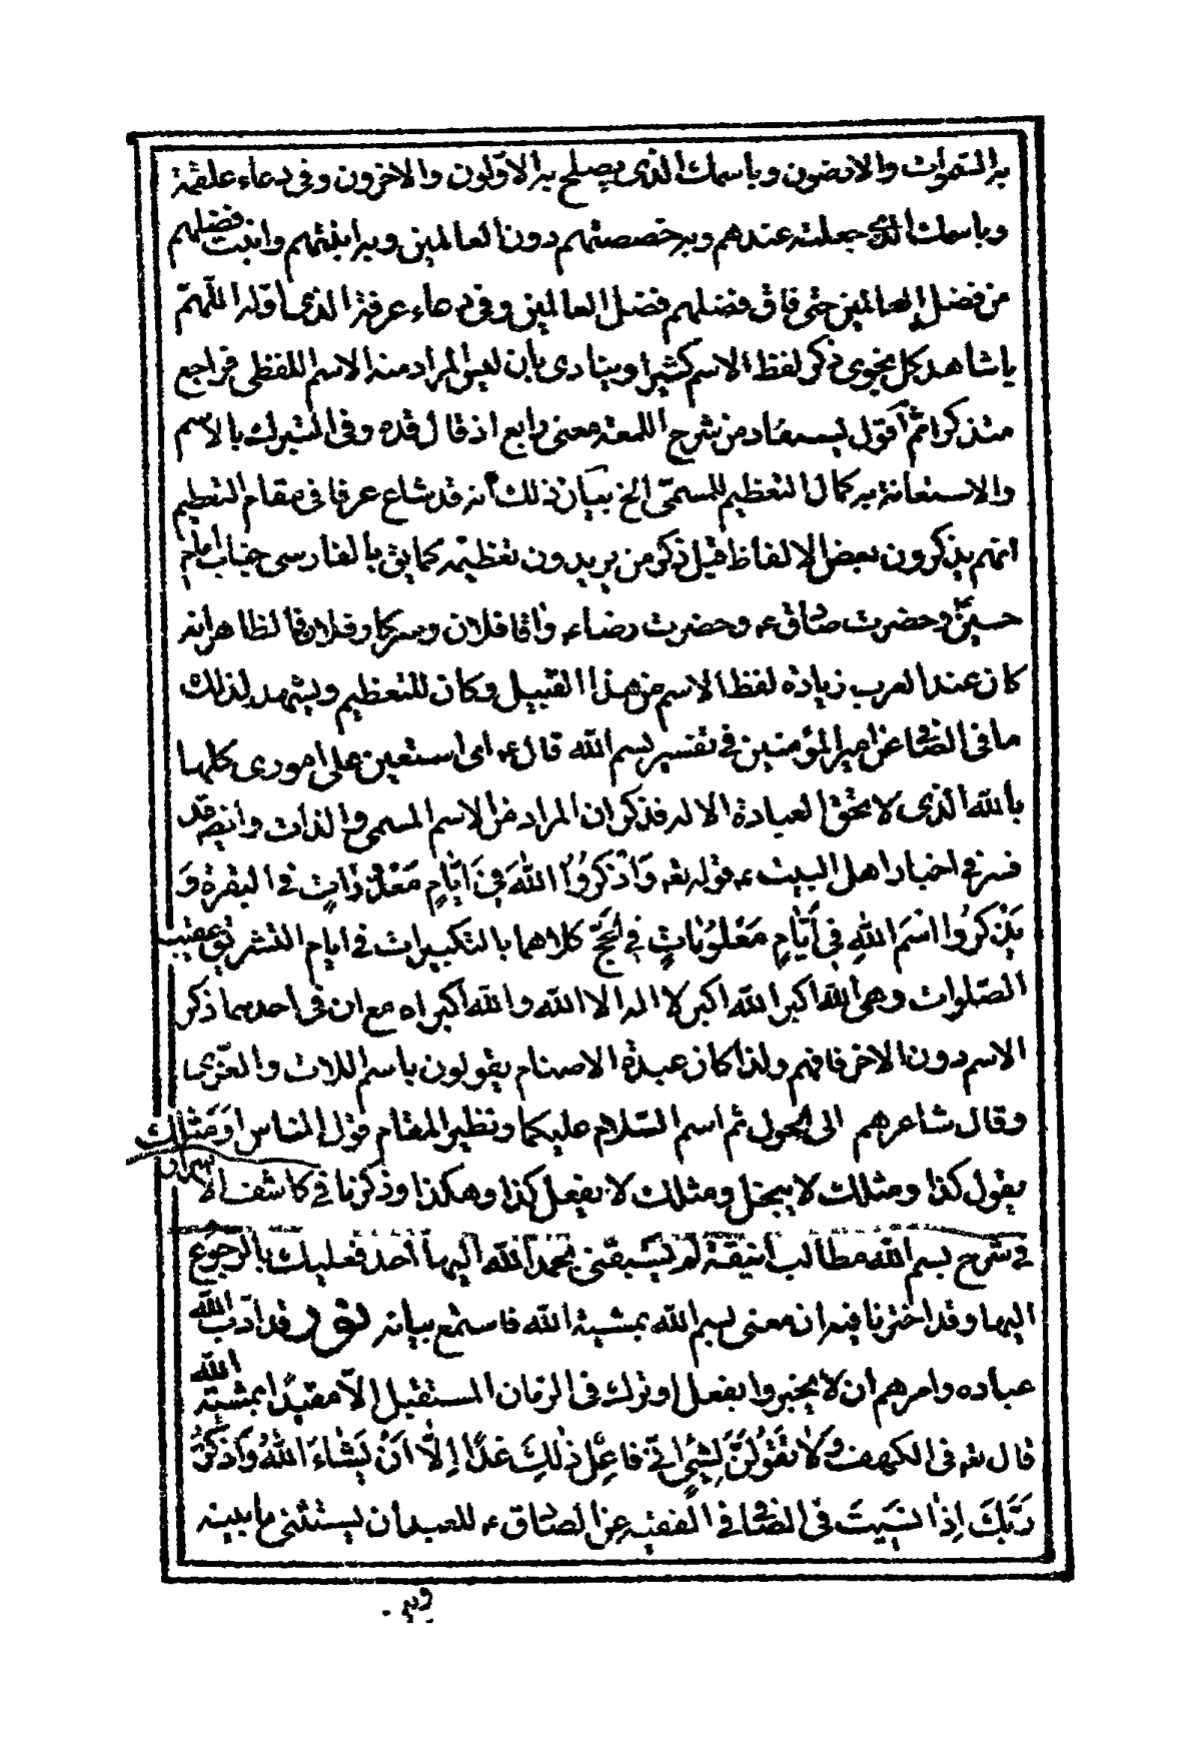 به السموات والارضون وباسمك الذى يصلح به الاولون والاخرون وفى دعاء علقمة
وباسمك الذى جعلته عندهم وبه خصصتهم دون العالمين وبه ابنتهم وابنت فضلهم
من فضل العالمين حتى فاق فضلهم فضل العالمين وفى دعاء عرفة الذى اوله اللهم
يا شاهد كل نجوى ذكر لفظ الاسم كثيرا وينادى بان ليس المراد منه الاسم اللفظى فراجع
متذكرا ثم اقول يستفاد من شرح اللمعة معنى رابع اذ قال قده وفى التبرك بالاسم
والاستعانة به كمال التعظيم للمسمى الخ بيان ذلك انه قد شاع عرفا فى مقام التعظيم
انهم يذكرون بعض الالفاظ قبل ذكر من يريدون تعظيمه كما يق بالفارسى جناب امام
حسين وحضرت صادق ع وحضرت رضاء ع واقا فلان وسركار فلان فالظاهر انه
كان عند العرب زيادة لفظ الاسم من هذا القبيل وكان للتعظيم ويشهد لذلك
ما فى الصافى عن امير المؤمنين فى تفسير بسم الله قال ع اى استعين على امورى كلها
بالله الذى لا يحق العبادة الا له فذكر ان المراد من الاسم المسمى والذات وايضا قد
فسر فى اخبار اهل البيت ع قوله تع وَاذْكُرُوا اللهَ فِى اَيَّامٍ مَعْدُودَاتٍ فى البقرة وَ
يَذْكُرُوا اسْمَ اللهِ فِى اَيَّامٍ مَعْلُومَاتٍ فى الحج كلاهما بالتكبيرات فى ايام التشريق عقيب
الصلوات وهى الله اكبر الله اكبر لا اله الا الله والله اكبر اه مع ان فى احدهما ذكر
الاسم دون الاخر فافهم ولذا كان عبدة الاصنام يقولون باسم اللات والعزى
وقال شاعرهم الى الحول ثم اسم السلام عليكما ونظير المقام قول الناس اومثلك
يقول كذا ومثلك لا يبخل ومثلك لا يفعل كذا وهكذا وذكرنا فى كاشف الاسرار
فى شرح بسم الله مطالب انيقة لم يسبقنى بحمد الله اليها احد فعليك بالرجوع
اليها وقد اخترنا فيه ان معنى بسم الله بمشية الله فاستمع بيانه نور قد ادّب الله
عباده وامرهم ان لا يخبروا بفعل او ترك فى الزمان المستقبل الا مقيدا بمشية الله
قال تع فى الكهف وَلَا تَقُولَنَّ لِشَىْءٍ اِنِّى فَاعِلٌ ذٰلِكَ غَدًا اِلَّا اَنْ يَشَاءَ اللهُ وَاذْكُرْ
رَبَّكَ اِذَا نَسِيتَ فى الصافى فى الفقيه عن الصادق ع للعبد ان يستثنى ما بينه